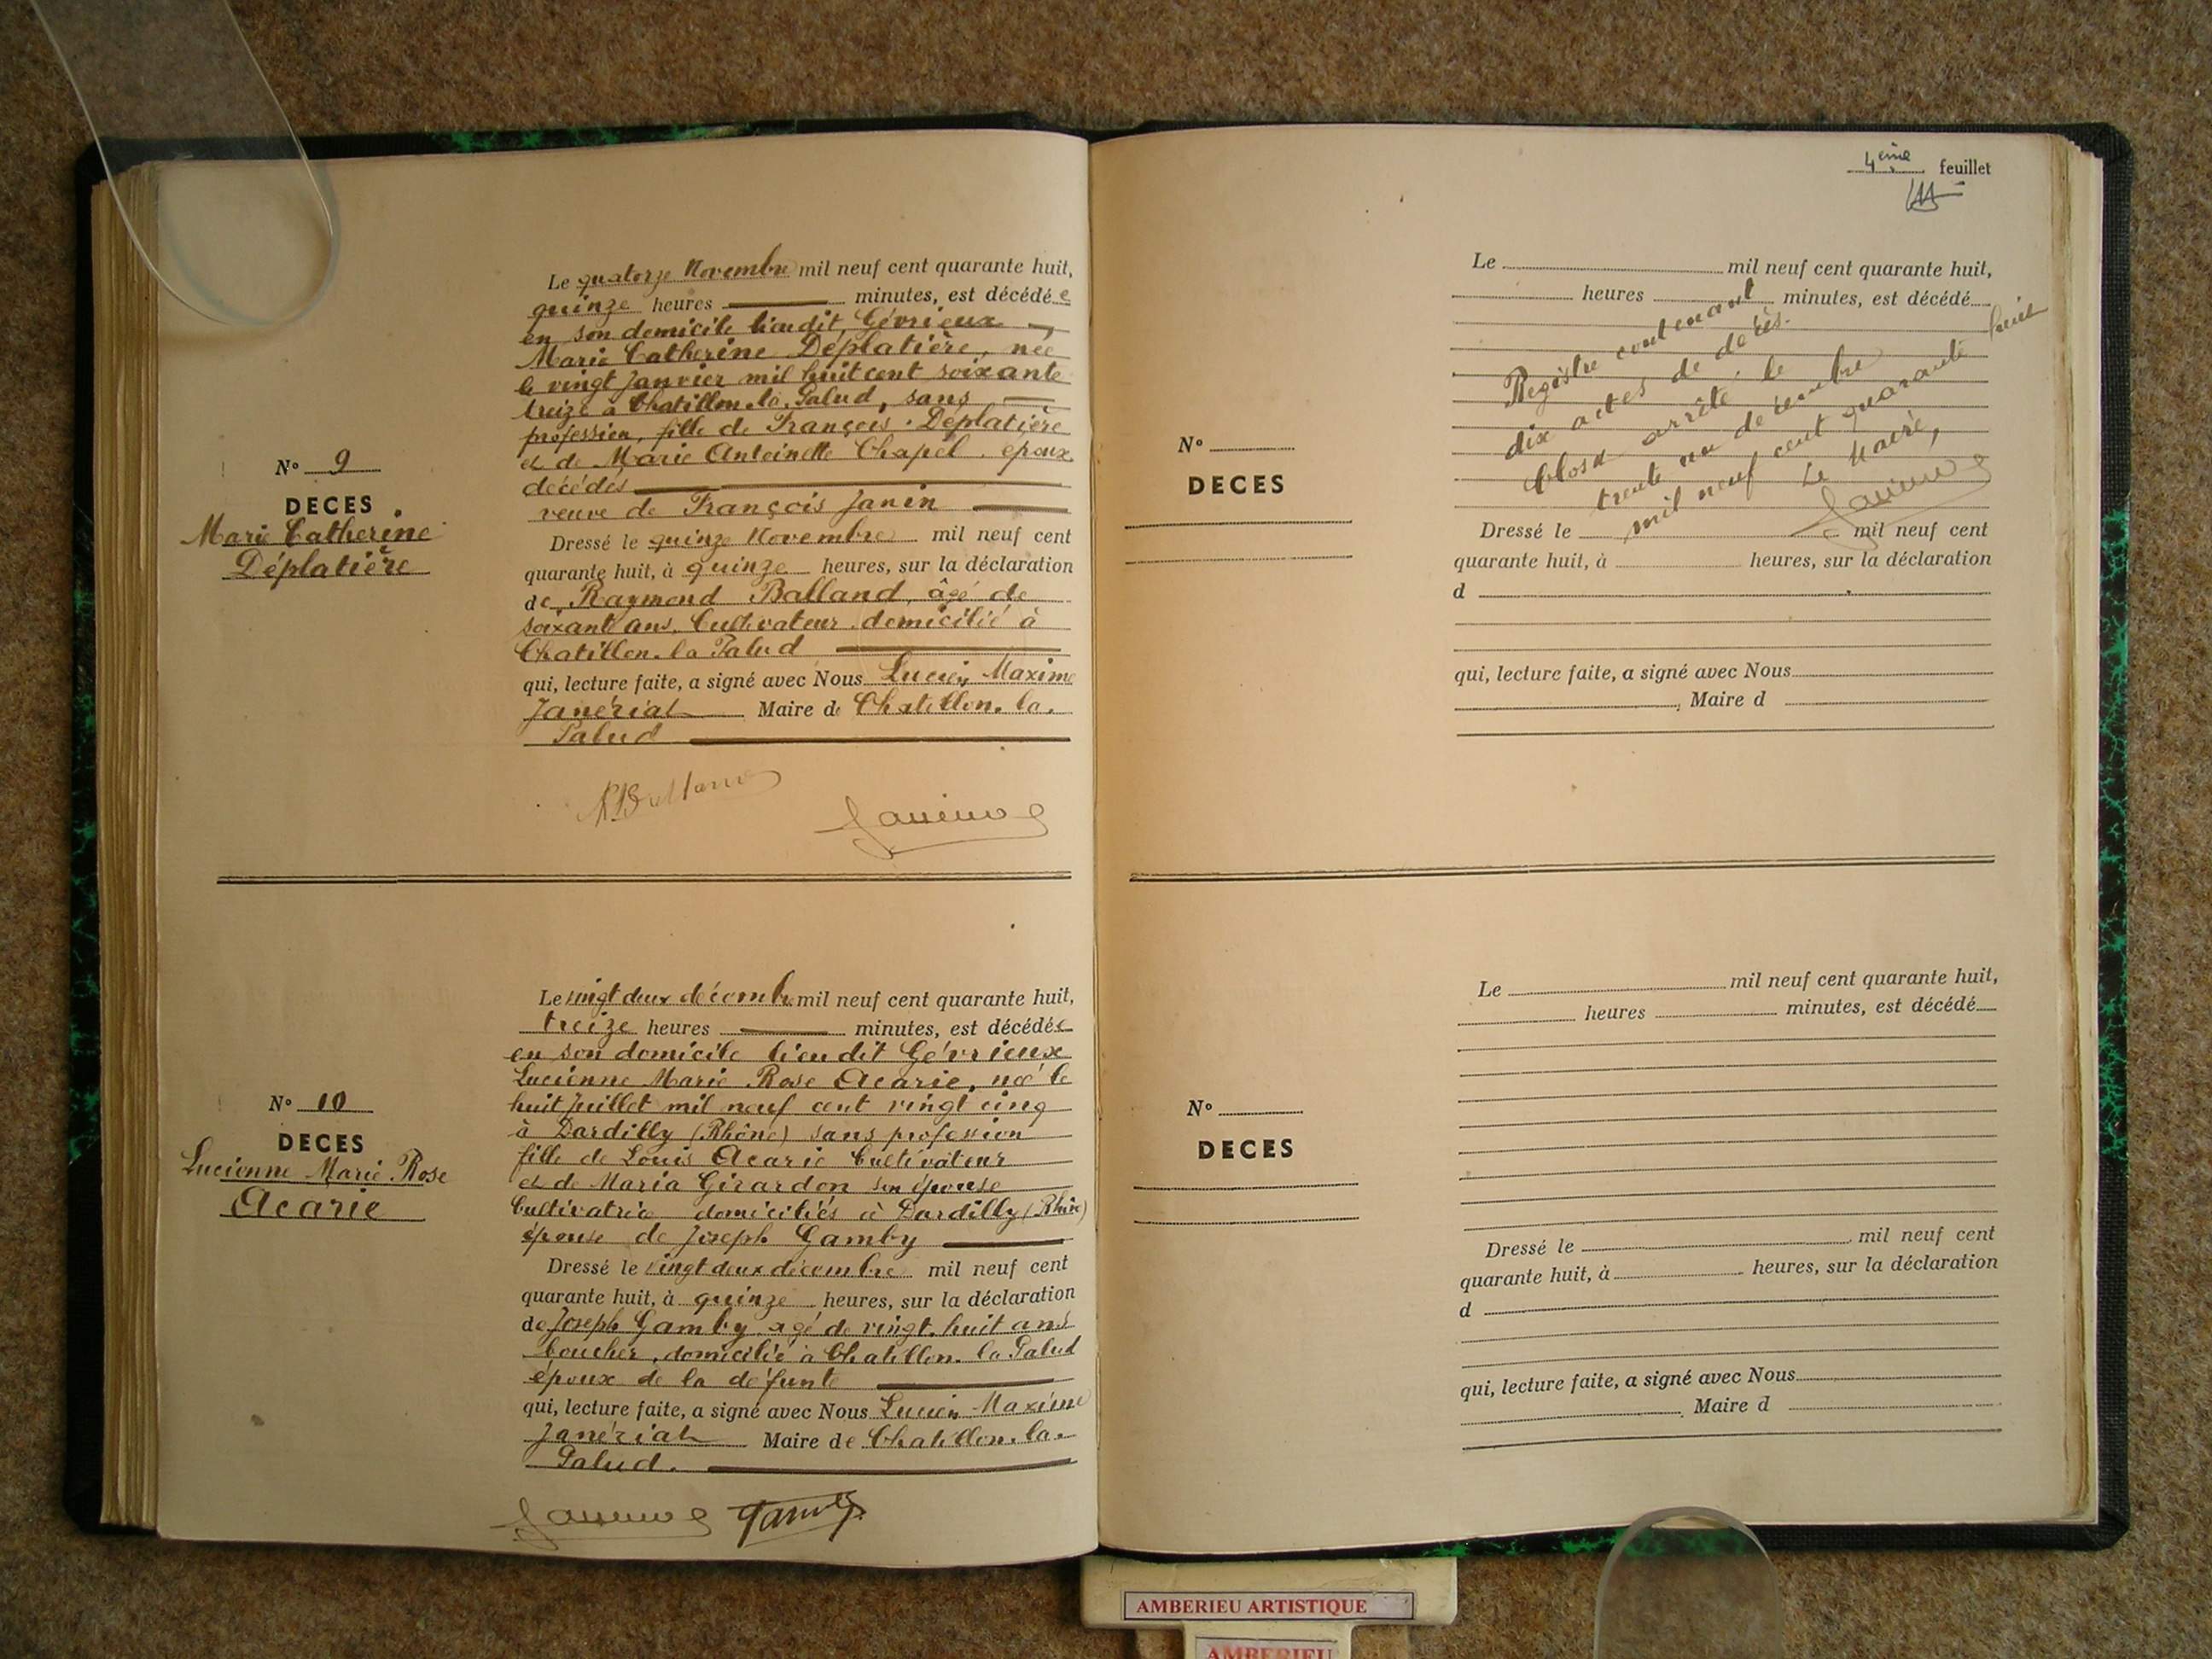 Le quatorze Novembre mil neuf cent quarante huit,
quinze heures minutes, est décédée
en son domicile lieudit, Gévrieux
Marie Catherine Déplatière, née
le vingt Janvier mil huit cent soixante
treize à Chatillon. la. Palud, sans
profession, fille de François. Déplatière
et de Marie Antoinette Chapel. époux
décédés
veuve de François Janin
N° 9
DECES
Marie Catherine
Déplatière
Dressé le quinze Novembre mil neuf cent
quarante huit, à quinze heures, sur la déclaration
de Raymond Balland, âgé de
soixant ans. Cultivateur domicilié à
Chatillon. la Palud
qui, lecture faite, a signé avec Nous Lucien Maxime
Janériat Maire de Chatillon. la.
Palud
Le vingt deux décembre mil neuf cent quarante huit,
treize heures minutes, est décédée
en son domicile lieu dit Gévrieux
Lucienne Marie Rose Acarie, née le
huit Juillet mil neuf cent vingt cinq
à Dardilly (Rhône) sans profession
fille de Louis Acarie Cultivateur
et de Maria Girardon son épouse
Cultivatrice domiciliés à Dardilly (Rhône)
épouse de Joseph Gamby
N° 10
DECES
Lucienne Marie Rose
Acarie
Dressé le vingt deux décembre mil neuf cent
quarante huit, à quinze heures, sur la déclaration
de Joseph Gamby agé de vingt. huit ans
boucher, domicilié à Chatillon. la Palud
époux de la défunte
qui, lecture faite, a signé avec Nous Lucien Maxime
Janériat Maire de Chatillon. la.
Palud.
Gamby
4ème feuillet
Le mil neuf cent quarante huit,
heures minutes, est décédé
Registre contenant
dix actes de décès.
Clos et arrêté, le
trente un décembre
mil neuf cent quarante huit
Le Maire,
N°
DECES
Dressé le mil neuf cent
quarante huit, à heures, sur la déclaration
d
qui, lecture faite, a signé avec Nous
, Maire d
Le mil neuf cent quarante huit,
heures minutes, est décédé
N°
DECES
Dressé le mil neuf cent
quarante huit, à heures, sur la déclaration
d
qui, lecture faite, a signé avec Nous
, Maire d
AMBERIEU ARTISTIQUE
AMBERIEU